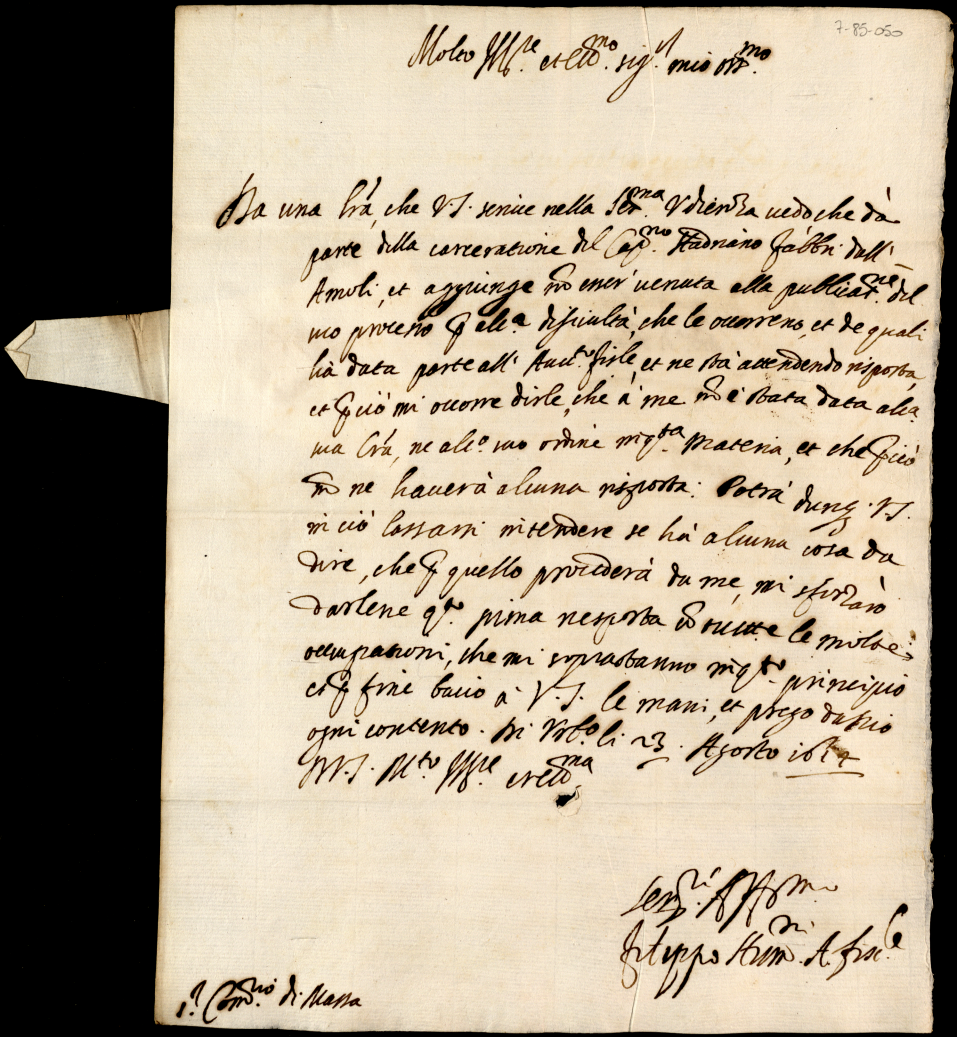 7-85-050
Molto Ill.re et ecc.mo sig.r mio oss.mo
Da una lra, che V.S. scrive nella Ser.ma Udienza vedo che dà
parte della carceratione del Cap.no Hadriano fabbri dall'
Amoli, et aggiunge nõ esser venuta alla publicat.ne del
suo processo ꝑ alc.a dificultà, che le occorreno, et de quali
hà data parte all' Aud.r fisle, et ne stà attendendo risposta,
et ꝑciò mi occorre dirle, che à me nõ è stata data alc.a
sua lra, ne alt.o suo ordine in q.ta materia, et che ꝑciò
nõ ne haverà alcuna risposta. Potrà dunq. V.S.
in ciò lassarsi intendere se hà alcuna cosa da
dire, che ꝑ quello procederà da me, mi sforzarò
darlene q.to prima risposta cõ tutte le molte
occupationi, che mi soprastanno in q.to principio
et ꝑ fine bacio à V.S. le mani, et prego da Dio
ogni contento. Di Urb.o li 23. Agosto
D.V.S. M.to Ill.re et ecc.ma
Ser.ri Aff.mo
filippo A. fisc.le
S.r Com.rio di Massa